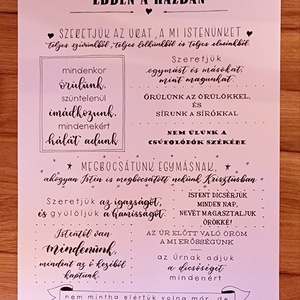 EBBEN A HÁZBAN
SZERETJÜK AZ URAT, A MI ISTENÜNKET
teljes szívünkből, teljes lelkünkből és teljes elménkből.
mindenkor
örülünk,
szüntelenül
imádkozunk,
mindenekért
hálát adunk
Szeretjük
egymást és másokat,
mint magunkat.
ÖRÜLÜNK AZ ÖRÜLŐKKEL,
ÉS
SÍRUNK A SÍRÓKKAL
NEM ÜLÜNK A
CSÚFOLÓDÓK SZÉKÉBE
MEGBOCSÁTUNK EGYMÁSNAK,
ahogyan Isten is megbocsátott nekünk Krisztusban
Szeretjük az igazságot,
és gyűlöljük a hamisságot.
ISTENT DICSÉRJÜK
MINDEN NAP,
NEVÉT MAGASZTALJUK
ÖRÖKKÉ!
Istentől van
mindenünk,
mindent az ő kezéből
kaptunk.
AZ ÚR ELŐTT VALÓ ÖRÖM
A MI ERŐSSÉGÜNK
az Úrnak adjuk
a dicsőséget
mindenért
nem mintha elértük volna már, de